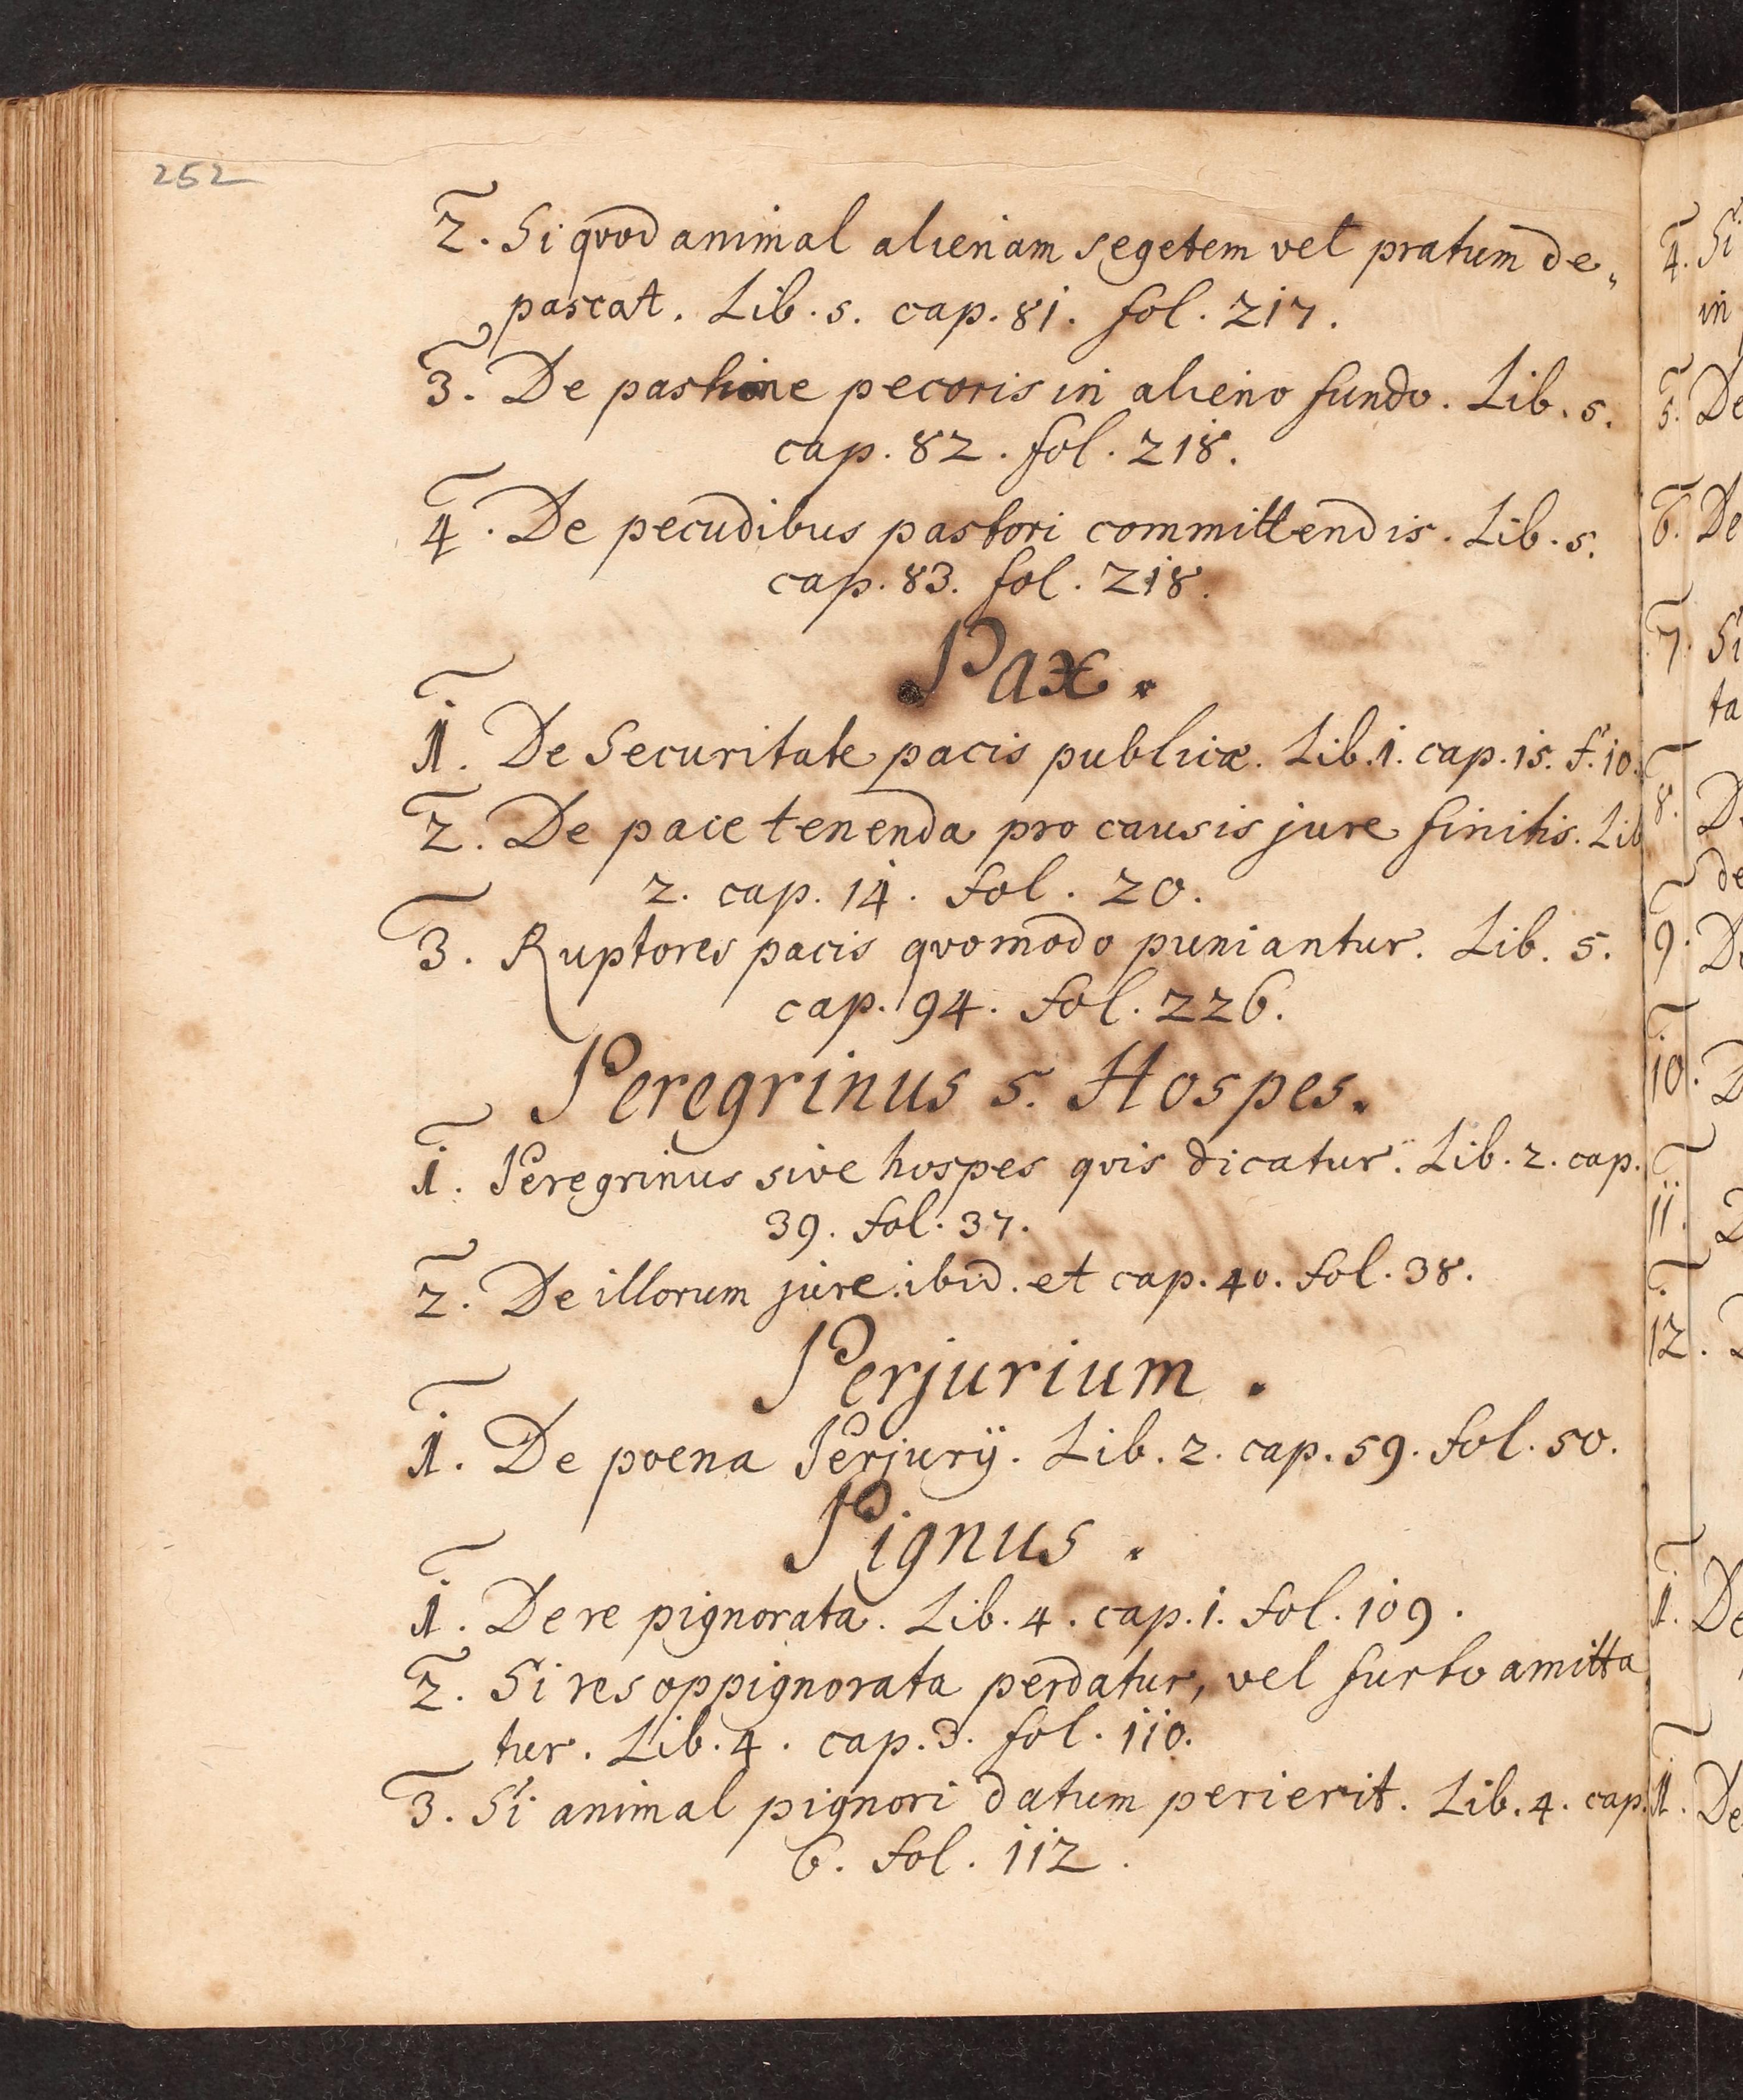 252
2. Si qvod animal alienam segetem vel pratum de„
pascat. Lib. 5. cap. 81. fol. 217.
3. De pastione pecoris in alieno fundo. Lib. 5.
cap. 82. fol. 218.
4. De pecudibus pastori committendis. Lib. 5.
cap. 83. fol. 218.
Pax.
1. De Securitate pacis publicæ. Lib. 1. cap. 15. f. 10.
2. De pace tenenda pro causis jure finitis. Lib
2. cap. 14. fol. 20.
3. Ruptores pacis qvomodo puniantur. Lib. 5.
cap. 94. fol. 226.
Peregrinus s. Hospes.
1. Peregrinus sive hospes qvis dicatur. Lib. 2. cap.
39. fol. 37.
2. De illorum jure. ibid. et cap. 40. fol. 38.
Perjurium.
1. De poena Perjurij. Lib. 2. cap. 59. fol. 50.
Pignus.
1. De re pignorata. Lib. 4. cap. 1. fol. 109.
2. Si res oppignorata perdatur, vel furto amitta
tur. Lib. 4. cap. 3. fol. 110.
3. Si animal pignori datum perierit. Lib. 4. cap.
6. fol. 112.
4. Si
in
5. De
6. De
7. Si
ta
8. D
de
9. D
10. D
11.
12.
1. De
1. De